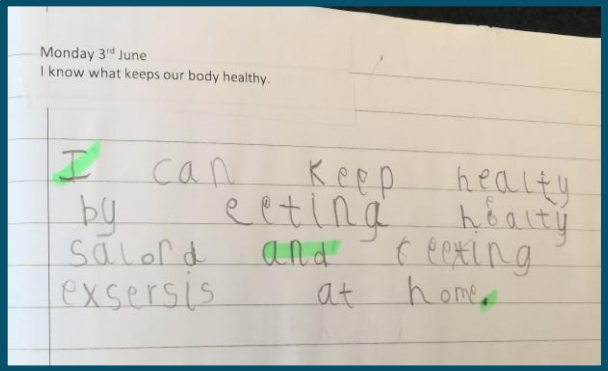 Monday 3rd June
I know what keeps our body healthy.
I can keep healty
by eeting healty
salord and ceeting
exsersis at home.